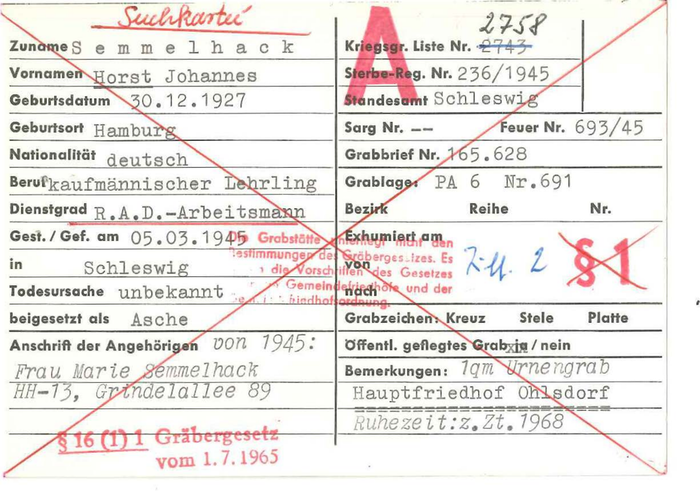 Suchkartei
A
Zuname Semmelhack
Vornamen Horst Johannes
Geburtsdatum 30.12.1927
Geburtsort Hamburg
Nationalität deutsch
Beruf kaufmännischer Lehrling
Dienstgrad R.A.D.-Arbeitsmann
Gest./Gef. am 05.03.1945
in Schleswig
Todesursache unbekannt
beigesetzt als Asche
Anschrift der Angehörigen von 1945:
Frau Marie Semmelhack
HH-13, Grindelallee 89
§ 16 (1) 1 Gräbergesetz
vom 1.7.1965
2758
Kriegsgr. Liste Nr. 2743
Sterbe-Reg. Nr. 236/1945
Standesamt Schleswig
Sarg Nr. -- Feuer Nr. 693/45
Grabbrief Nr. 165.628
Grablage: PA 6 Nr.691
Bezirk Reihe Nr.
Exhumiert am
von
nach
Die Grabstätte unterliegt nicht den
Bestimmungen des Gräbergesetzes. Es
die Vorschriften des Gesetzes
Gemeindefriedhöfe und der
Friedhofsordnung.
Ziff. 2
§ 1
Grabzeichen: Kreuz Stele Platte
Öffentl. gepflegtes Grab ja / nein
Bemerkungen: 1qm Urnengrab
Hauptfriedhof Ohlsdorf
Ruhezeit:z.Zt.1968